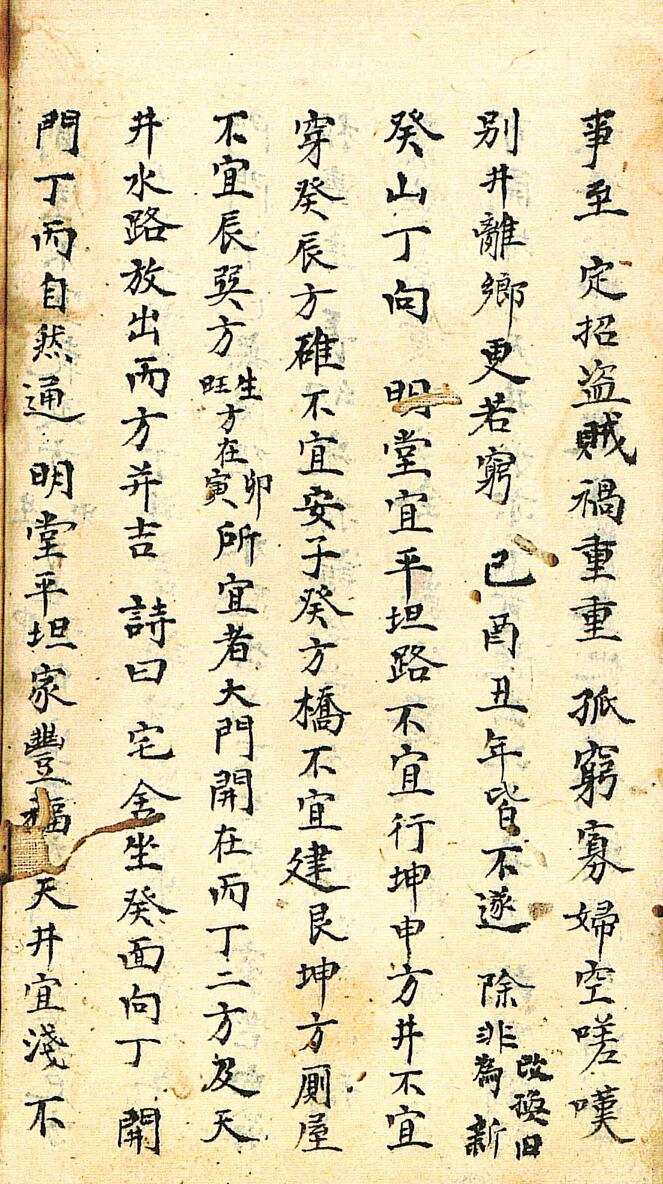 事至 定招盗賊禍重重 孤窮寡婦空嗟嘆
別井離鄉更若窮 已酉丑年皆不遂 除非為新改換旧
癸山丁向 明堂宜平坦路不宜行坤申方井不宜
穿癸辰方碓不宜安子癸方橋不宜建艮坤方厠屋
不宜辰巽方生旺方在卯寅所宜者大門開在丙丁二方及天
井水路放出丙方并吉 詩曰 宅舍坐癸面向丁 開
門丁丙自然通 明堂平坦家豐福 天井宜淺不